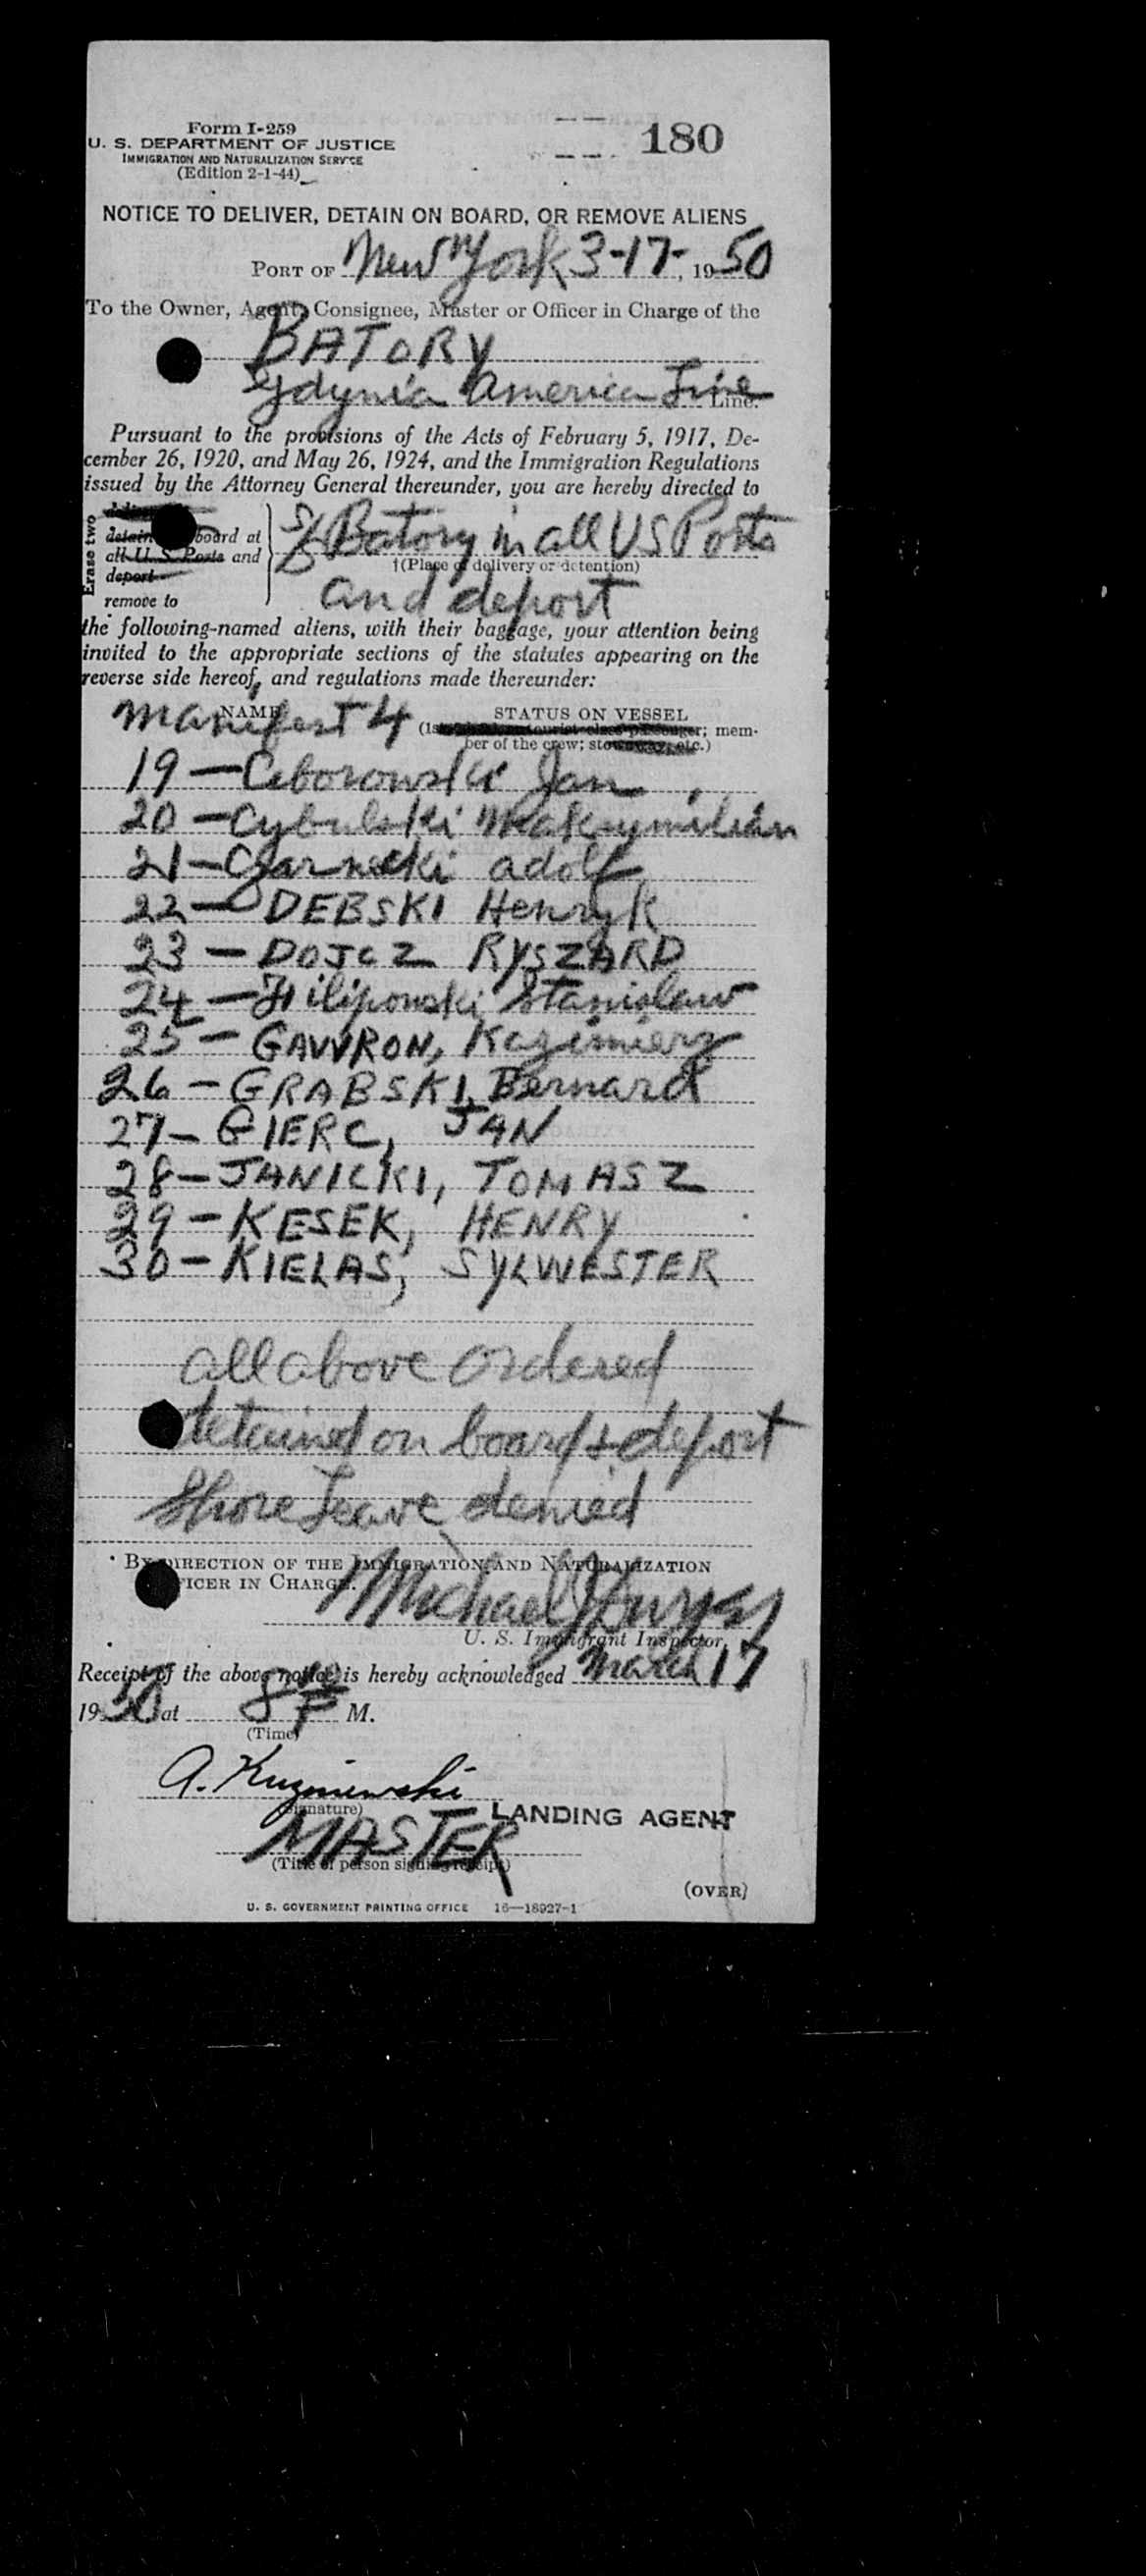 Form I-259
U. S. DEPARTMENT OF JUSTICE
IMMIGRATION AND NATURALIZATION SERVICE
(Edition 2-1-44)
180
NOTICE TO DELIVER, DETAIN ON BOARD, OR REMOVE ALIENS
PORT OF New York 3-17-, 1950
To the Owner, Agent, Consignee, Master or Officer in Charge of the
BATORY
Gdynia America Line Line.
Pursuant to the provisions of the Acts of February 5, 1917, De-
cember 26, 1920, and May 26, 1924, and the Immigration Regulations
issued by the Attorney General thereunder, you are hereby directed to
Erase two
detain board at
all U. S. Ports and
deport
remove to
S/S Batory in all US Ports
†(Place of delivery or detention)
and deport
the following-named aliens, with their baggage, your attention being
invited to the appropriate sections of the statutes appearing on the
reverse side hereof, and regulations made thereunder:
NAME
Manifest 4
STATUS ON VESSEL
tourist class passenger; mem-
ber of the crew; stowaway, etc.)
19 — Ciborowski Jan
20 — Cybulski Maksymilian
21 — Czarnecki adolf
22 — DEBSKI Henryk
23 — DOJCZ RYSZARD
24 — Filipowski Stanislaw
25 — GAWRON, Kazimierz
26 — GRABSKI, Bernard
27 — GIERC, JAN
28 — JANICKI, TOMASZ
29 — KESEK, HENRY
30 — KIELAS, SYLWESTER
all above ordered
detained on board & deport
Shore Leave denied
BY DIRECTION OF THE IMMIGRATION AND NATURALIZATION
OFFICER IN CHARGE.
Michael J
U. S. Immigrant Inspector.
Receipt of the above notice is hereby acknowledged March 17
1950 at 8 P M.
(Time)
A. Kuzniewski
(Signature)
LANDING AGENT
MASTER
(Title of person signing receipt)
(OVER)
U. S. GOVERNMENT PRINTING OFFICE 16—18927-1